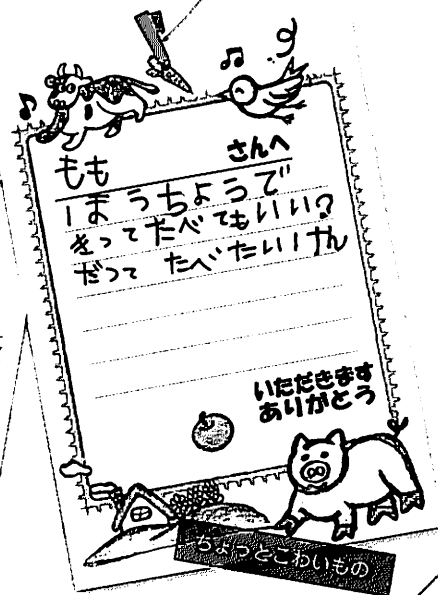 もも さんへ
ほうちょうで
きって たべてもいい?
だって たべたいけん
いただきます
ありがとう
ちょっとこわいもの